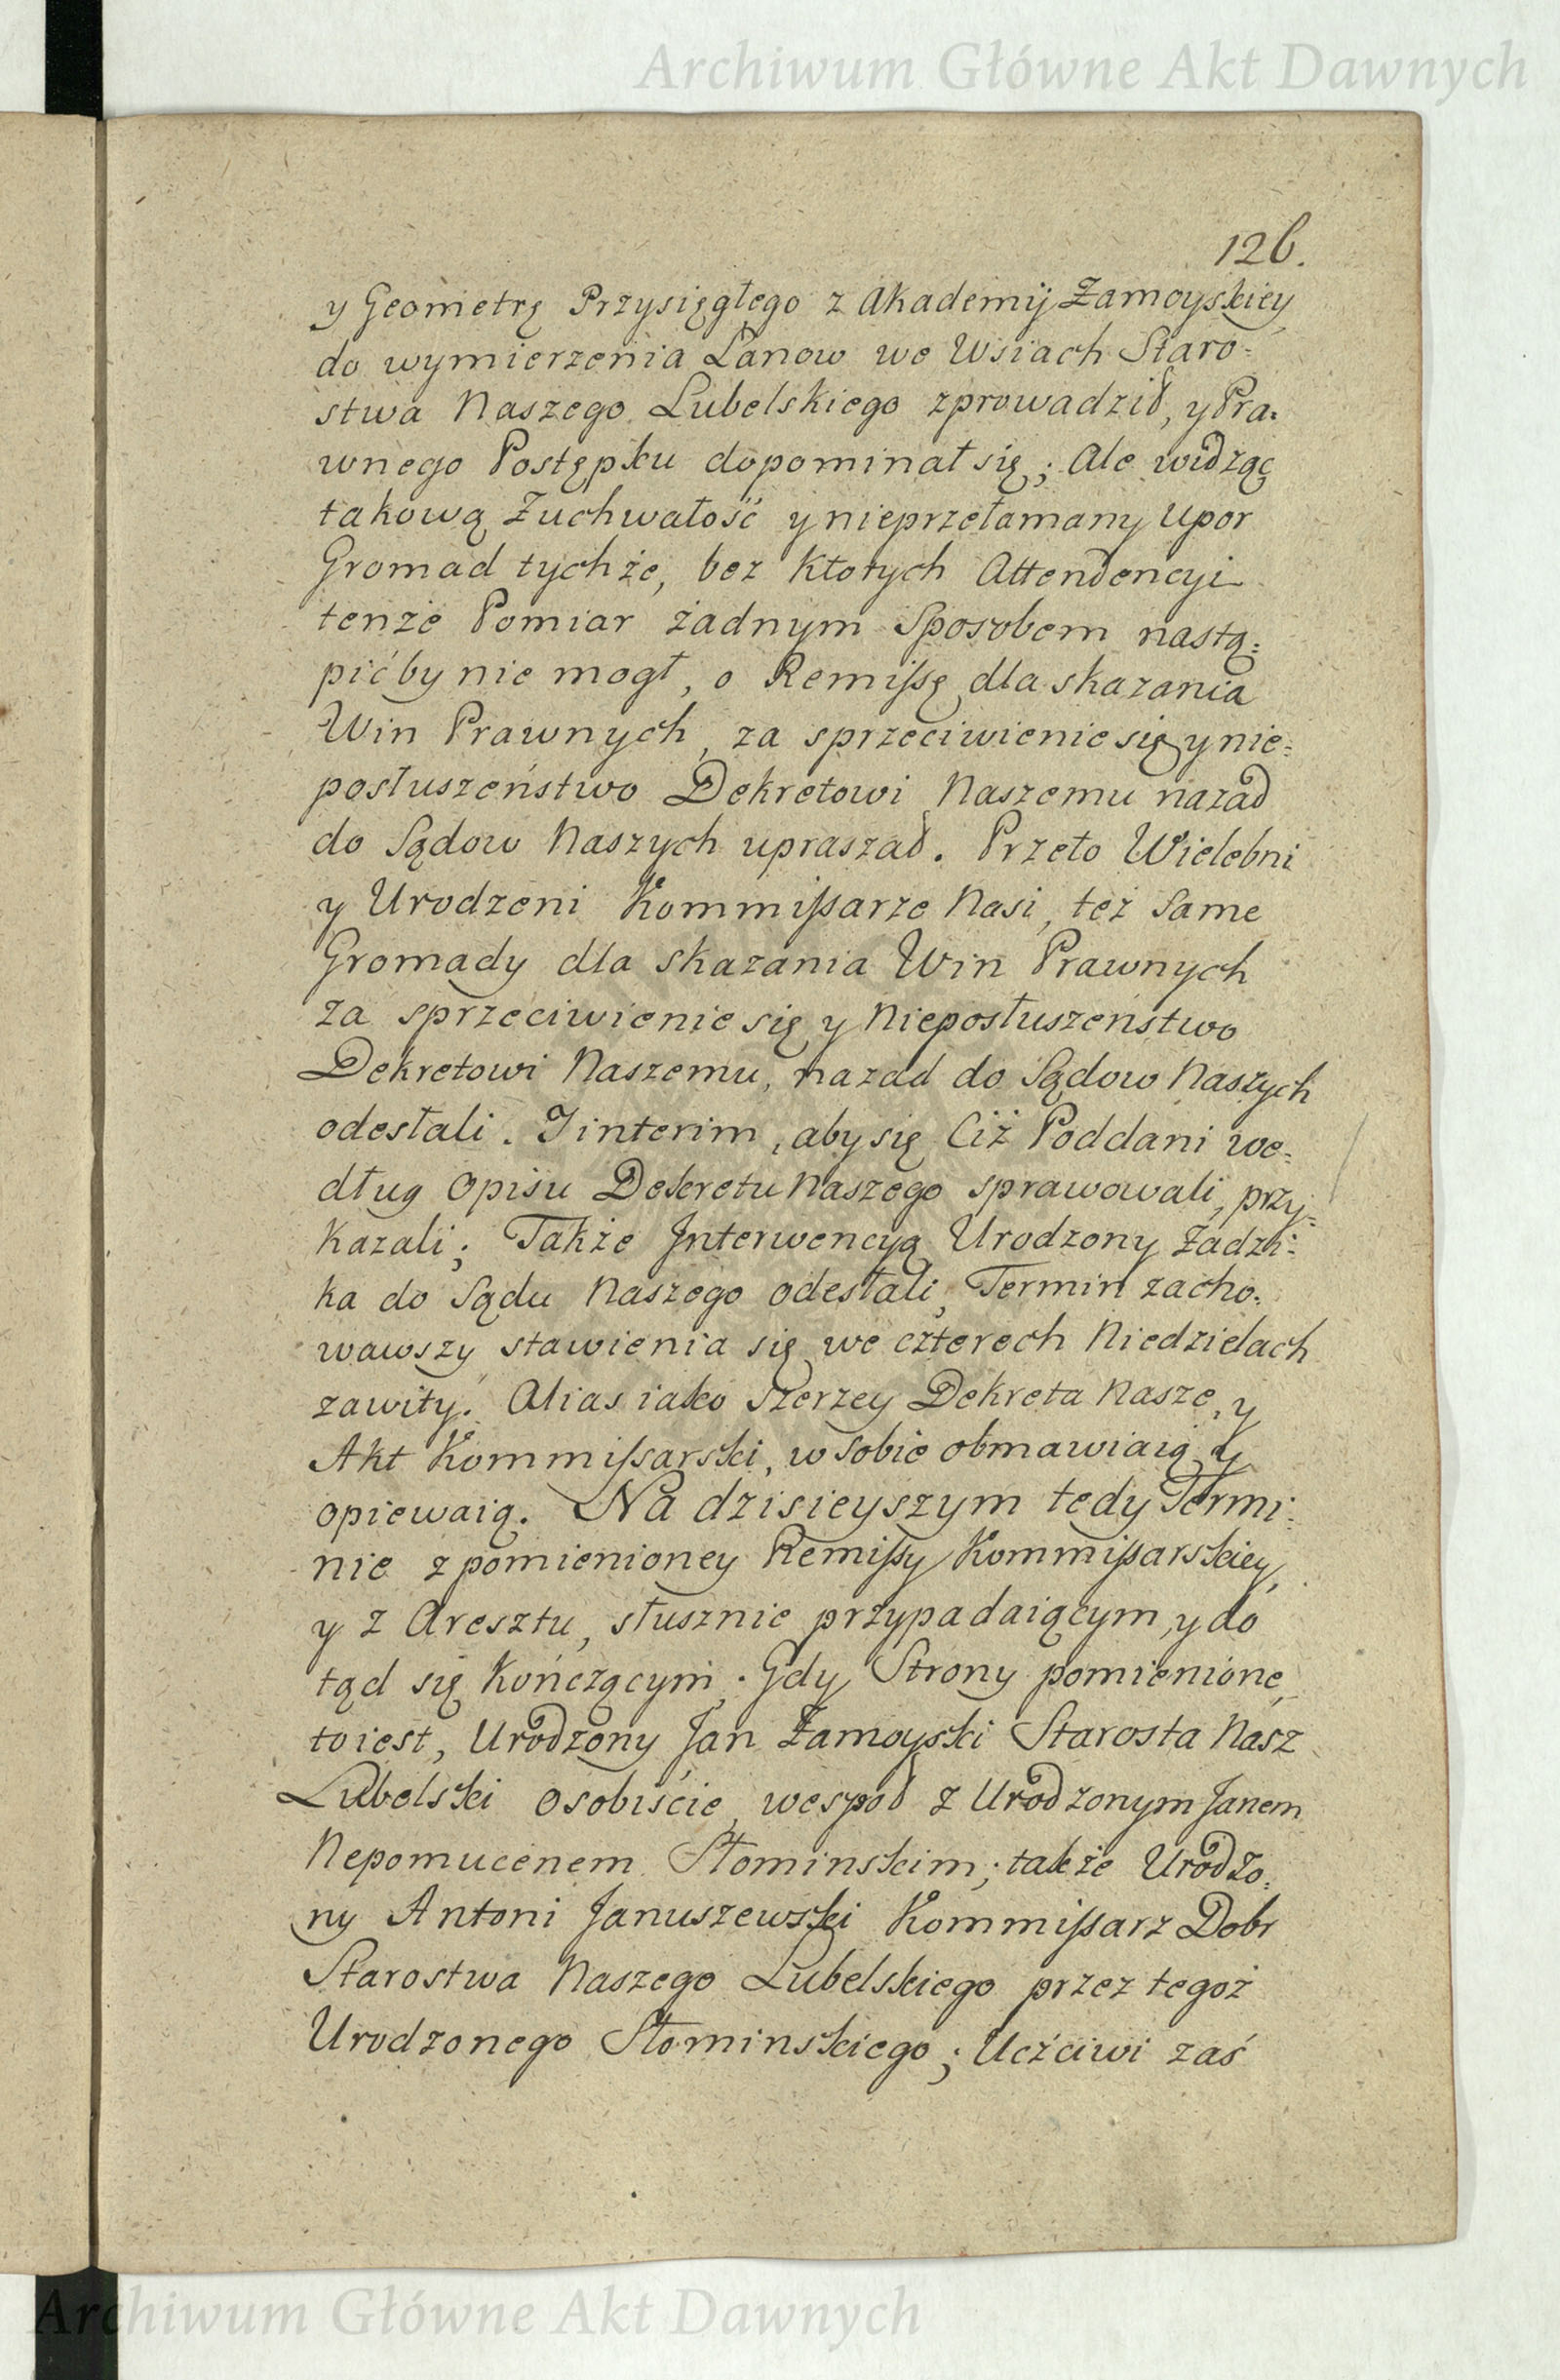 Archiwum Główne Akt Dawnych
126.
y Geometrę Przysięgłego z Akademij Zamoyskiey
do wymierzenia Łanow we Wsiach Staro-
stwa Naszego Lubelskiego zprowadził, y Pra-
wnego Postępku dopominał się; Ale widząc
takową Zuchwałość y nieprzełamany Upor
Gromad tychże, bez Ktorych Attendencyi
tenże Pomiar żadnym Sposobem nastą-
pić by nie mogł, o Remissę dla skazania
Win Prawnych, za sprzeciwienie się y nie-
posłuszeństwo Dekretowi Naszemu nazad
do Sądow Naszych upraszał. Przeto Wielebni
y Urodzeni Kommissarze Nasi, też Same
Gromady dla skazania Win Prawnych
za sprzeciwienie się y Nieposłuszeństwo
Dekretowi Naszemu, nazad do Sądow Naszych
odesłali. I interim, aby się Ciż Poddani we-
dług Opisu Dekretu Naszego sprawowali, przy-
kazali; Także Interwencyą Urodzony Zadzi-
ka do Sądu Naszego odesłali, Termin zacho-
wawszy stawienia się we czterech Niedzielach
zawity. Alias iako szerzey Dekreta Nasze, y
Akt Kommissarski, w Sobie obmawiaią y
opiewaią. Na dzisieyszym tedy Termi-
nie z pomienioney Remissy Kommissarskiey,
y z Aresztu, słusznie przypadaiącym, y do
tąd się Kończącym. Gdy Strony pomienione,
to iest, Urodzony Jan Zamoyski Starosta Nasz
Lubelski osobiście, wespoł z Urodzonym Janem
Nepomucenem Słominskim; także Urodzo-
ny Antoni Januszewski Kommissarz Dobr
Starostwa Naszego Lubelskiego przez tegoż
Urodzonego Słominskiego; Uczciwi zaś
Archiwum Główne Akt Dawnych